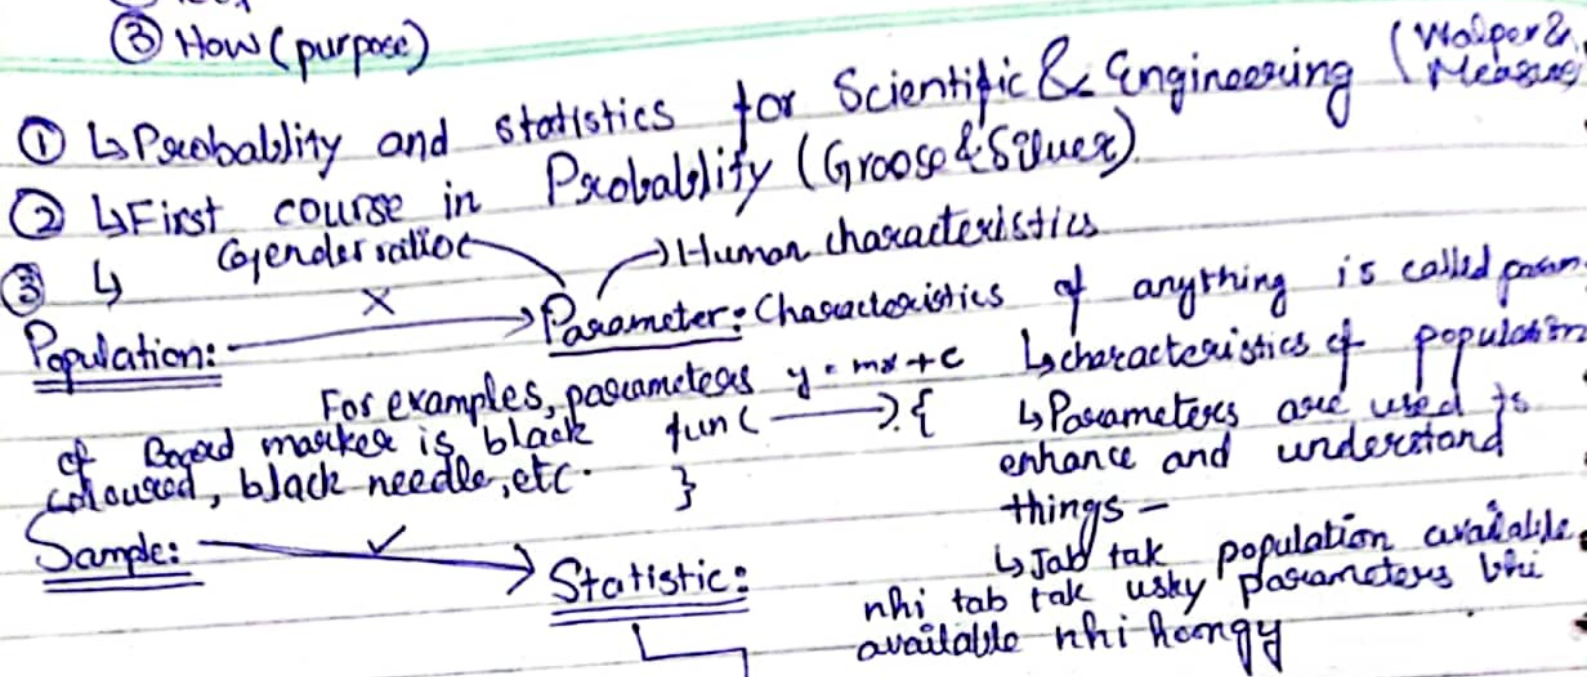 ③ How (purpose)
① ↳ Probablity and statistics for Scientific & Engineering (Walper &
② ↳ First course in Probablity (Groose & Silver)
③ ↳ Gender ratio
→ Human characteristics
Population: X → Parameter: Characteristics of anything is called param
↳ characteristics of population
For examples, parameters y = mx + c
of Board marker is black fun ( → ) {
coloured, black needle, etc. }
↳ Parameters are used to
enhance and understand
things –
Sample: ✓ → Statistic:
↳ Jab tak population available
nhi tab tak usky parameters bhi
available nhi hongy